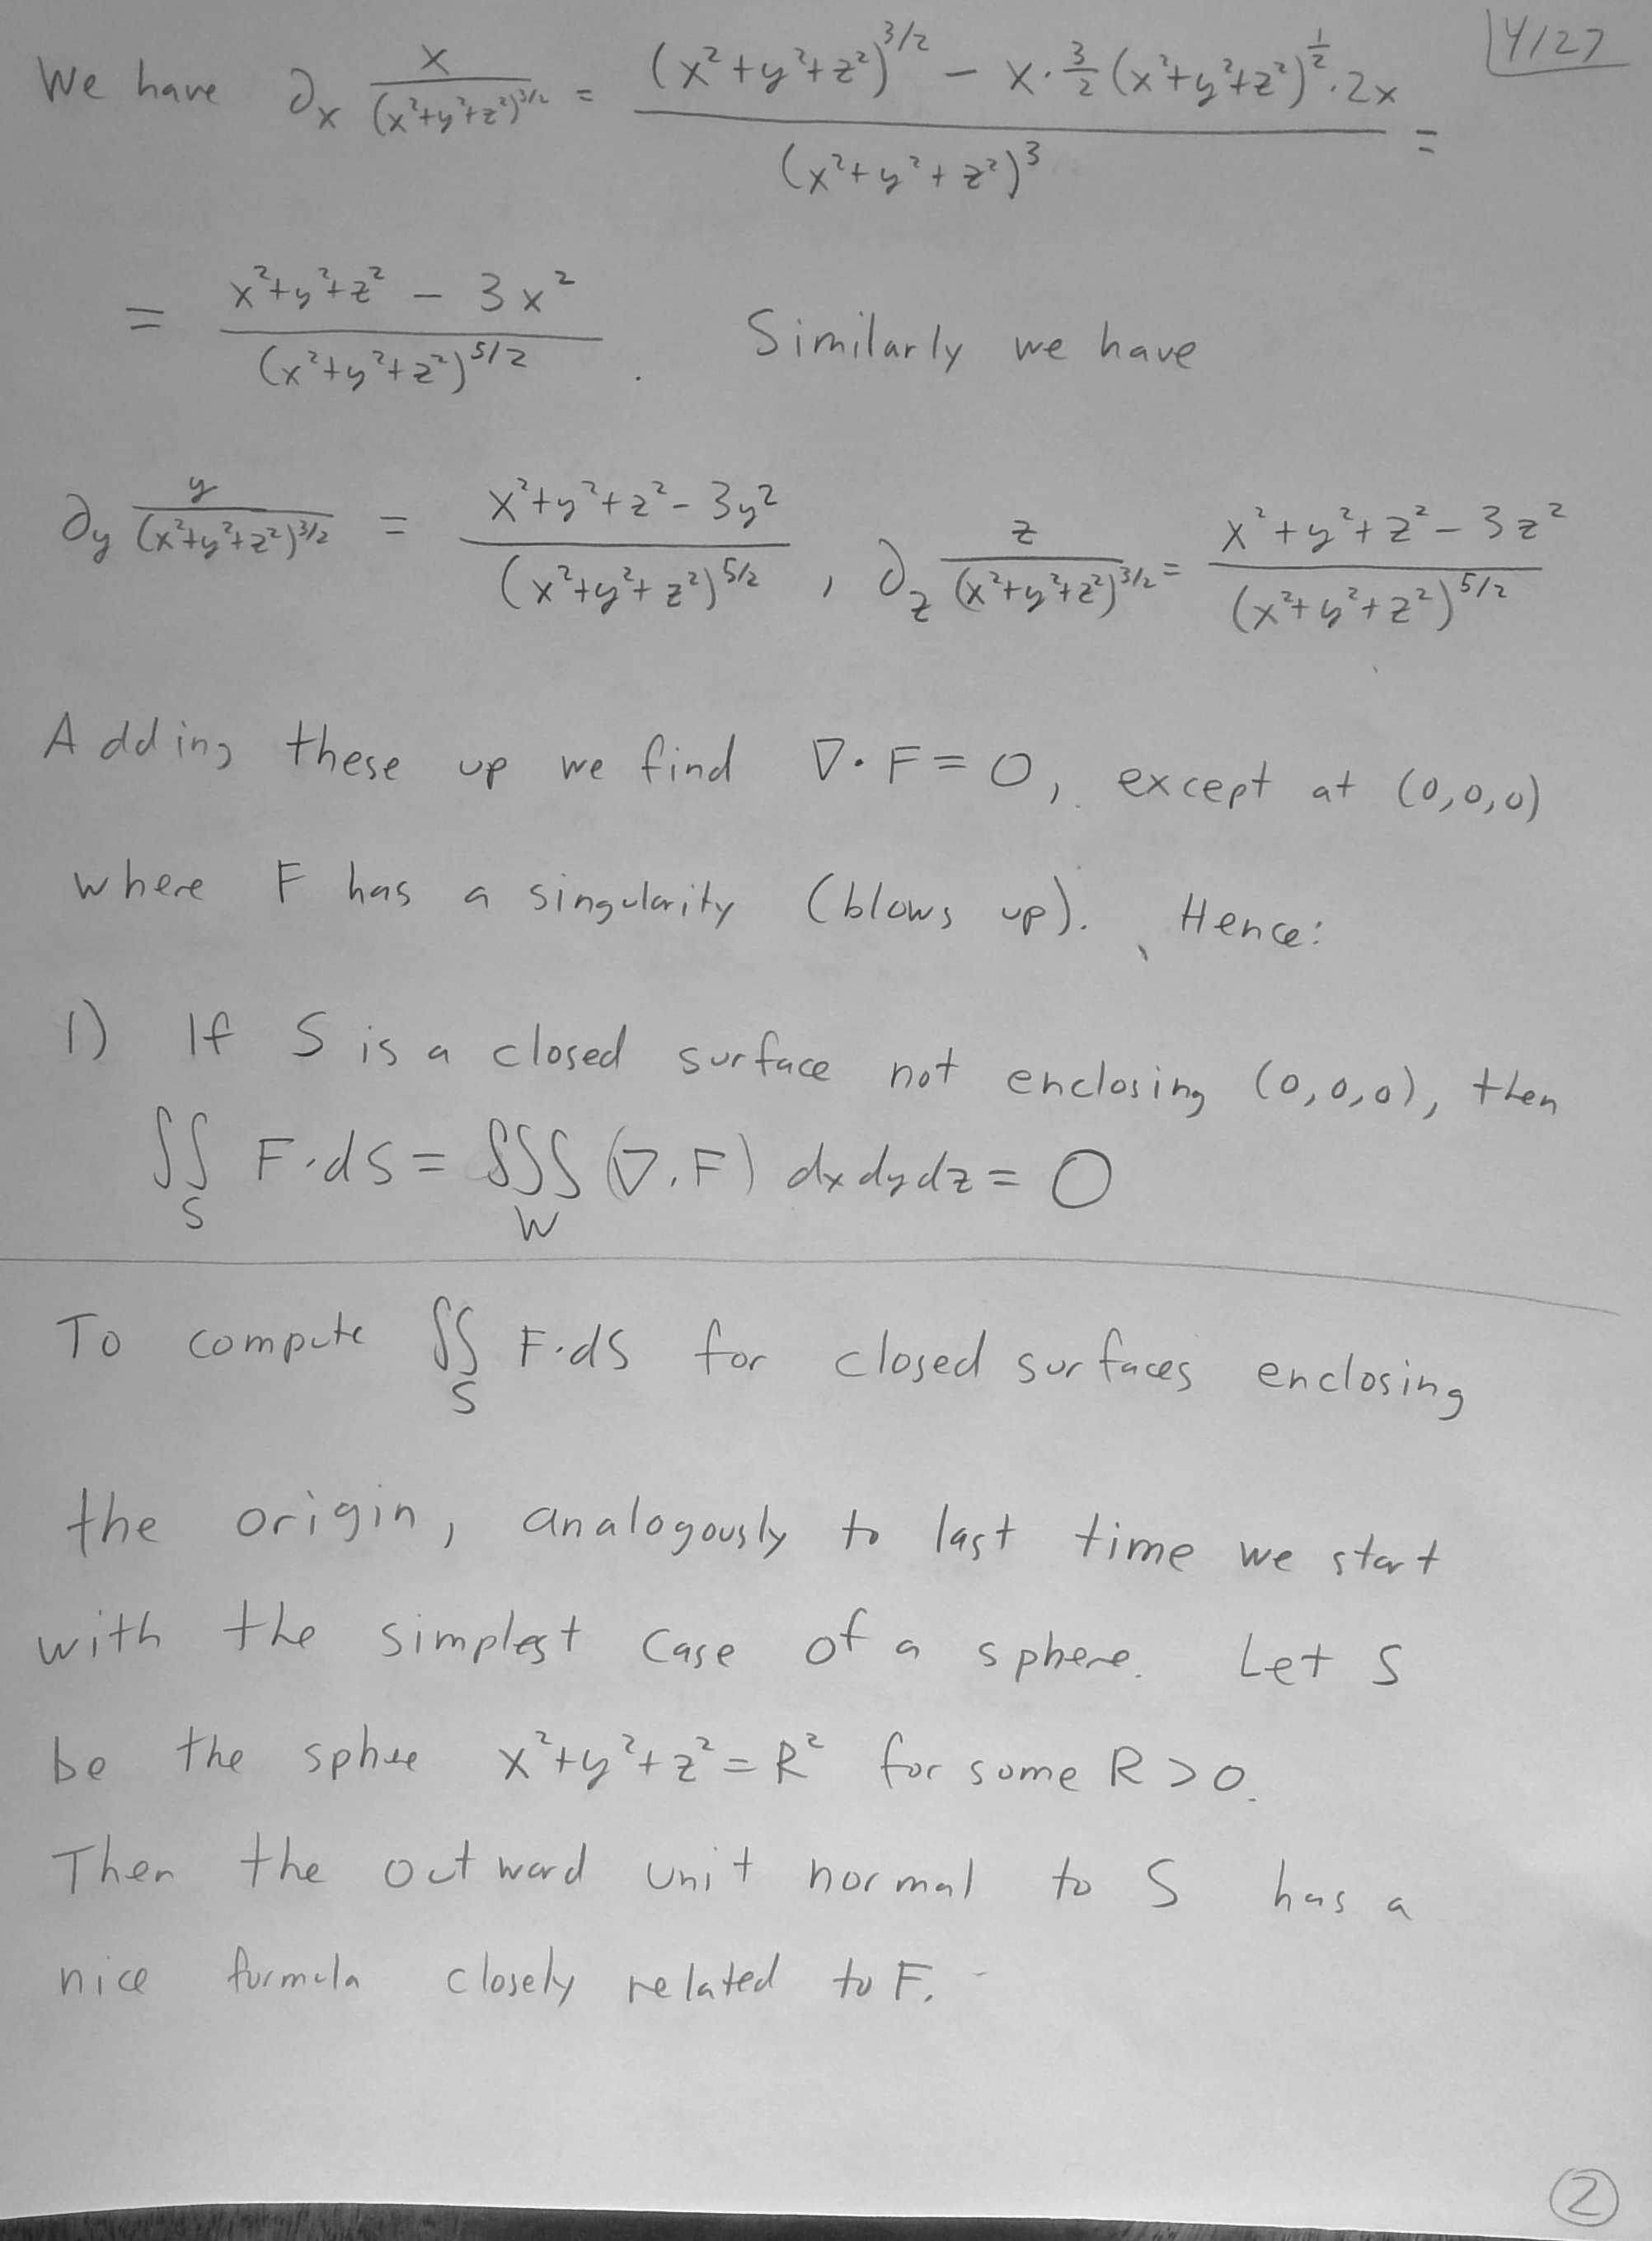 4/27
We have ∂x x/(x²+y²+z²)^3/2 = ((x²+y²+z²)^3/2 − x·3/2(x²+y²+z²)^1/2·2x)/(x²+y²+z²)^3 =
= (x²+y²+z² − 3x²)/(x²+y²+z²)^5/2 . Similarly we have
∂y y/(x²+y²+z²)^3/2 = (x²+y²+z²−3y²)/(x²+y²+z²)^5/2 , ∂z z/(x²+y²+z²)^3/2 = (x²+y²+z²−3z²)/(x²+y²+z²)^5/2
Adding these up we find ∇·F=0, except at (0,0,0)
where F has a singularity (blows up). Hence:
1) If S is a closed surface not enclosing (0,0,0), then
∬_S F·dS = ∭_W (∇·F) dxdydz = 0
To compute ∬_S F·dS for closed surfaces enclosing
the origin, analogously to last time we start
with the simplest case of a sphere. Let S
be the sphee x²+y²+z²=R² for some R>0.
Then the outward unit normal to S has a
nice formula closely related to F.
2